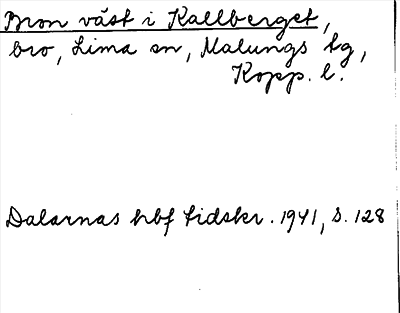 Bron väst i Kallberget,
bro, Lima sn, Malungs tg,
Kopp. l.
Dalarnas hbf tidskr. 1941, s. 128